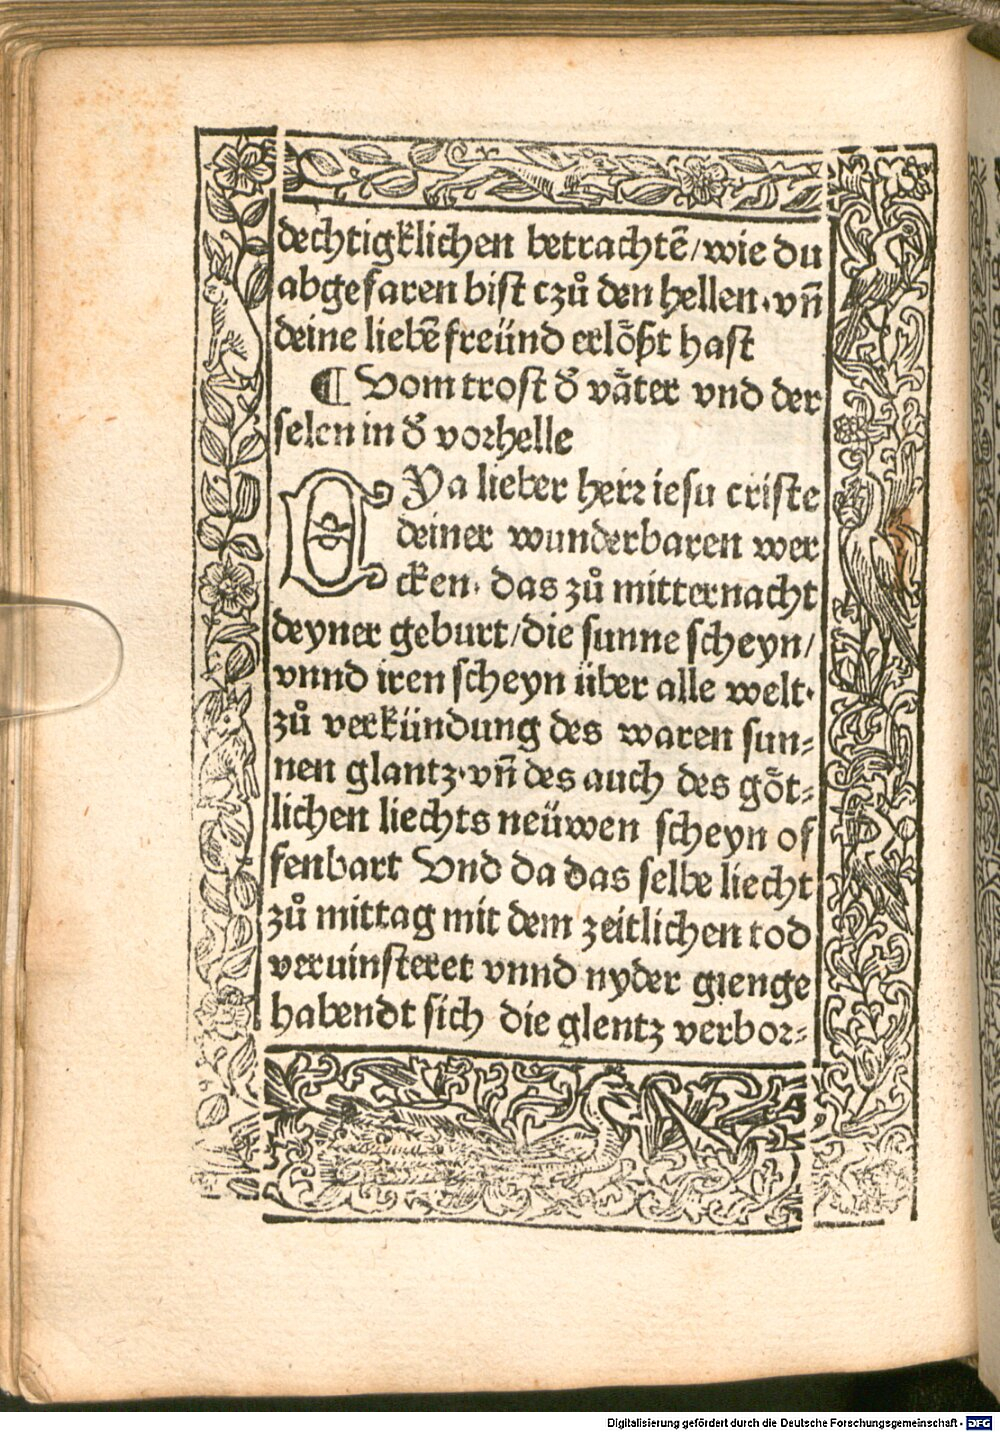 dechtigklichen betrachtē/wie du
abgefaren bist czů den hellen·vn̄
deine liebē freünd erlößt hast
¶ Vom trost d̕ väter vnd der
selen in d̕ vorhelle
EYa lieber herr iesu criste
deiner wunderbaren wer
cken· das zů mitternacht
deyner geburt/die sunne scheyn/
vnnd iren scheyn über alle welt·
zů verkündung des waren sun⸗
nen glantz·vn̄ des auch des göt⸗
lichen liechts neüwen scheyn of
fenbart Vnd da das selbe liecht
zů mittag mit dem zeitlichen tod
veruinsteret vnnd nyder gienge
habendt sich die glentz verbor⸗
Digitalisierung gefördert durch die Deutsche Forschungsgemeinschaft - DFG